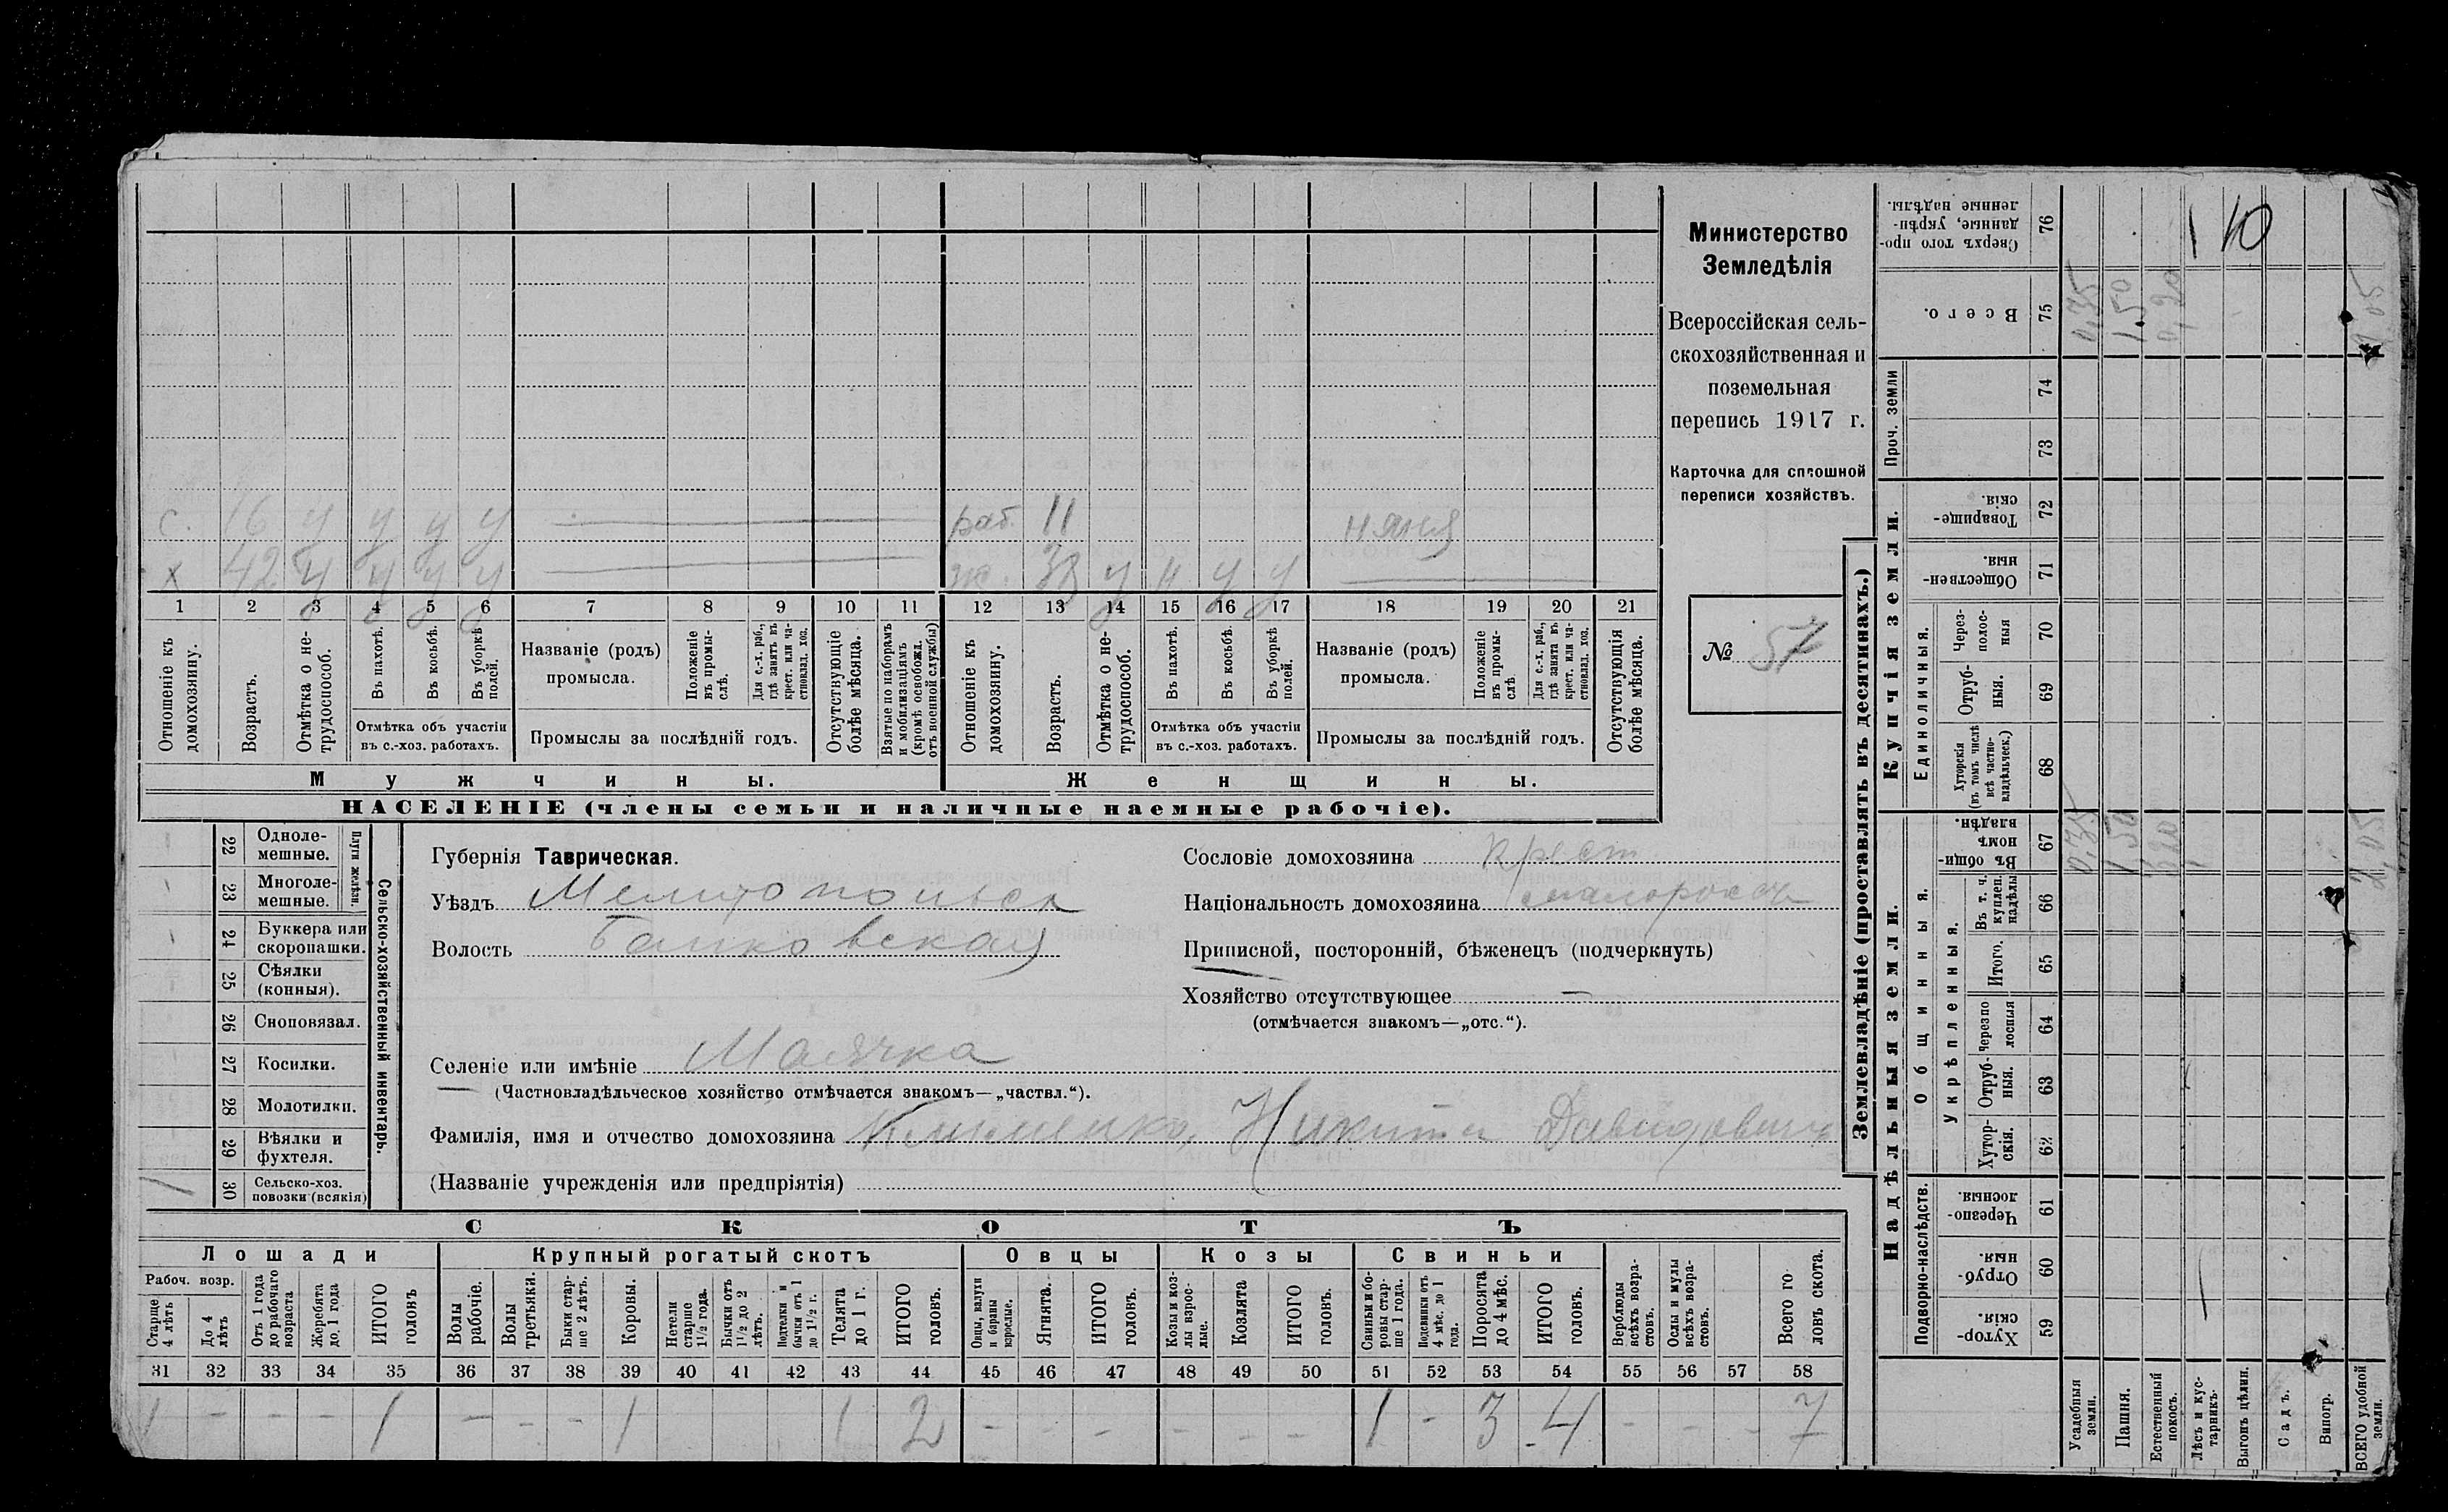 с. 16 у у у у раб. 11 няня
х 42 у у у у ж. 38 у н у у
1 2 3 4 5 6 7 8 9 10 11 12 13 14 15 16 17 18 19 20 21
Отношеніе къ домохозяину.
Возрастъ.
Отмѣтка о не-трудоспособ.
Въ пахотѣ.
Въ косьбѣ.
Въ уборкѣ полей.
Отмѣтка объ участіи
въ с.-хоз. работахъ.
Названіе (родъ)
промысла.
Положеніе въ промы-слѣ.
Для с.-х. раб., гдѣ занятъ въ крест. или ча-стновлад. хоз.
Промыслы за послѣдній годъ.
Отсутствующіе болѣе мѣсяца.
Взятые по наборамъ и мобилизаціямъ (кромѣ освобожд. отъ военной службы)
Отношеніе къ домохозяину.
Возрастъ.
Отмѣтка о не-трудоспособ.
Въ пахотѣ.
Въ косьбѣ.
Въ уборкѣ полей.
Отмѣтка объ участіи
въ с.-хоз. работахъ.
Названіе (родъ)
промысла.
Положеніе въ промы-слѣ.
Для с.-х. раб., гдѣ занята въ крест. или ча-стновлад. хоз.
Промыслы за послѣдній годъ.
Отсутствующія болѣе мѣсяца.
Мужчины. Женщины.
НАСЕЛЕНІЕ (члены семьи и наличные наемные рабочіе).
Министерство
Земледѣлія
Всероссійская сель-
скохозяйственная и
поземельная
перепись 1917 г.
Карточка для сплошной
переписи хозяйствъ.
№ 57
Сельско-хозяйственный инвентарь.
Плуги желѣзн.
22 Одноле-мешные.
23 Многоле-мешные.
24 Буккера или скоропашки.
25 Сѣялки (конныя).
26 Сноповязал.
27 Косилки.
28 Молотилки.
29 Вѣялки и фухтеля.
1 30 Сельско-хоз. повозки (всякія)
Губернія Таврическая.
Уѣздъ Мелитопольск
Волость Балковская
Селеніе или имѣніе Маячка
(Частновладѣльческое хозяйство отмѣчается знакомъ—„частвл.“).
Фамилія, имя и отчество домохозяина Клименко, Никита Давидович
(Названіе учрежденія или предпріятія)
Сословіе домохозяина Крест.
Національность домохозяина малоросс
Приписной, посторонній, бѣженецъ (подчеркнуть)
Хозяйство отсутствующее —
(отмѣчается знакомъ—„отс.“).
СКОТЪ
Лошади Крупный рогатый скотъ Овцы Козы Свиньи
Рабоч. возр.
Старше 4 лѣтъ
До 4 лѣтъ
Отъ 1 года до рабочаго возраста
Жеребята до 1 года
ИТОГО головъ
Волы рабочіе.
Волы третьяки.
Быки стар-ше 2 лѣтъ.
Коровы.
Нетели старше 1½ года.
Бычки отъ 1½ до 2 лѣтъ.
Подтелки и бычки отъ 1 до 1½ г.
Телята до 1 г.
ИТОГО головъ.
Овцы, валухи и бараны взрослые.
Ягнята.
ИТОГО головъ.
Козы и коз-лы взрос-лые.
Козлята
ИТОГО головъ.
Свиньи и бо-ровы стар-ше 1 года.
Подсвинки отъ 4 мѣс. до 1 года.
Поросята до 4 мѣс.
ИТОГО головъ.
Верблюды всѣхъ возра-стовъ.
Ослы и мулы всѣхъ возра-стовъ.
Всего го ловъ скота.
31 32 33 34 35 36 37 38 39 40 41 42 43 44 45 46 47 48 49 50 51 52 53 54 55 56 57 58
1 - - - 1 - - - 1 1 2 - - - - - - 1 - 3 4 - - - 7
Землевладѣніе (проставлять въ десятинахъ.)
Купчія земли.
Надѣльныя земли.
Сверхъ того про-данные, укрѣп-ленные надѣлы. 76 10
Всего. 75 0,35 1,50 0,20 2,05
Проч. земли
74
73
Товарище-скія. 72
Обществен-ныя. 71
Единоличныя.
Через-полос-ныя 70
Отруб-ныя. 69
Хуторскія (въ томъ числѣ всѣ частно-владѣльческ.) 68
Общинныя.
Въ общи-номъ владѣн. 67 0,35 1,50 0,20 2,05
Укрѣпленныя.
Въ т. ч. куплен. надѣлы 66
Итого. 65
Черезпо лосныя 64
Отруб-ныя. 63
Хутор-скія. 62
Подворно-наслѣдств.
Черезпо-лосныя. 61
Отруб-ныя. 60
Хутор-скія. 59
Усадебныя земли.
Пашня.
Естественный покосъ.
Лѣсъ и кус-тарникъ.
Выгонъ цѣлин.
Садъ.
Виногр.
ВСЕГО удобной земли.